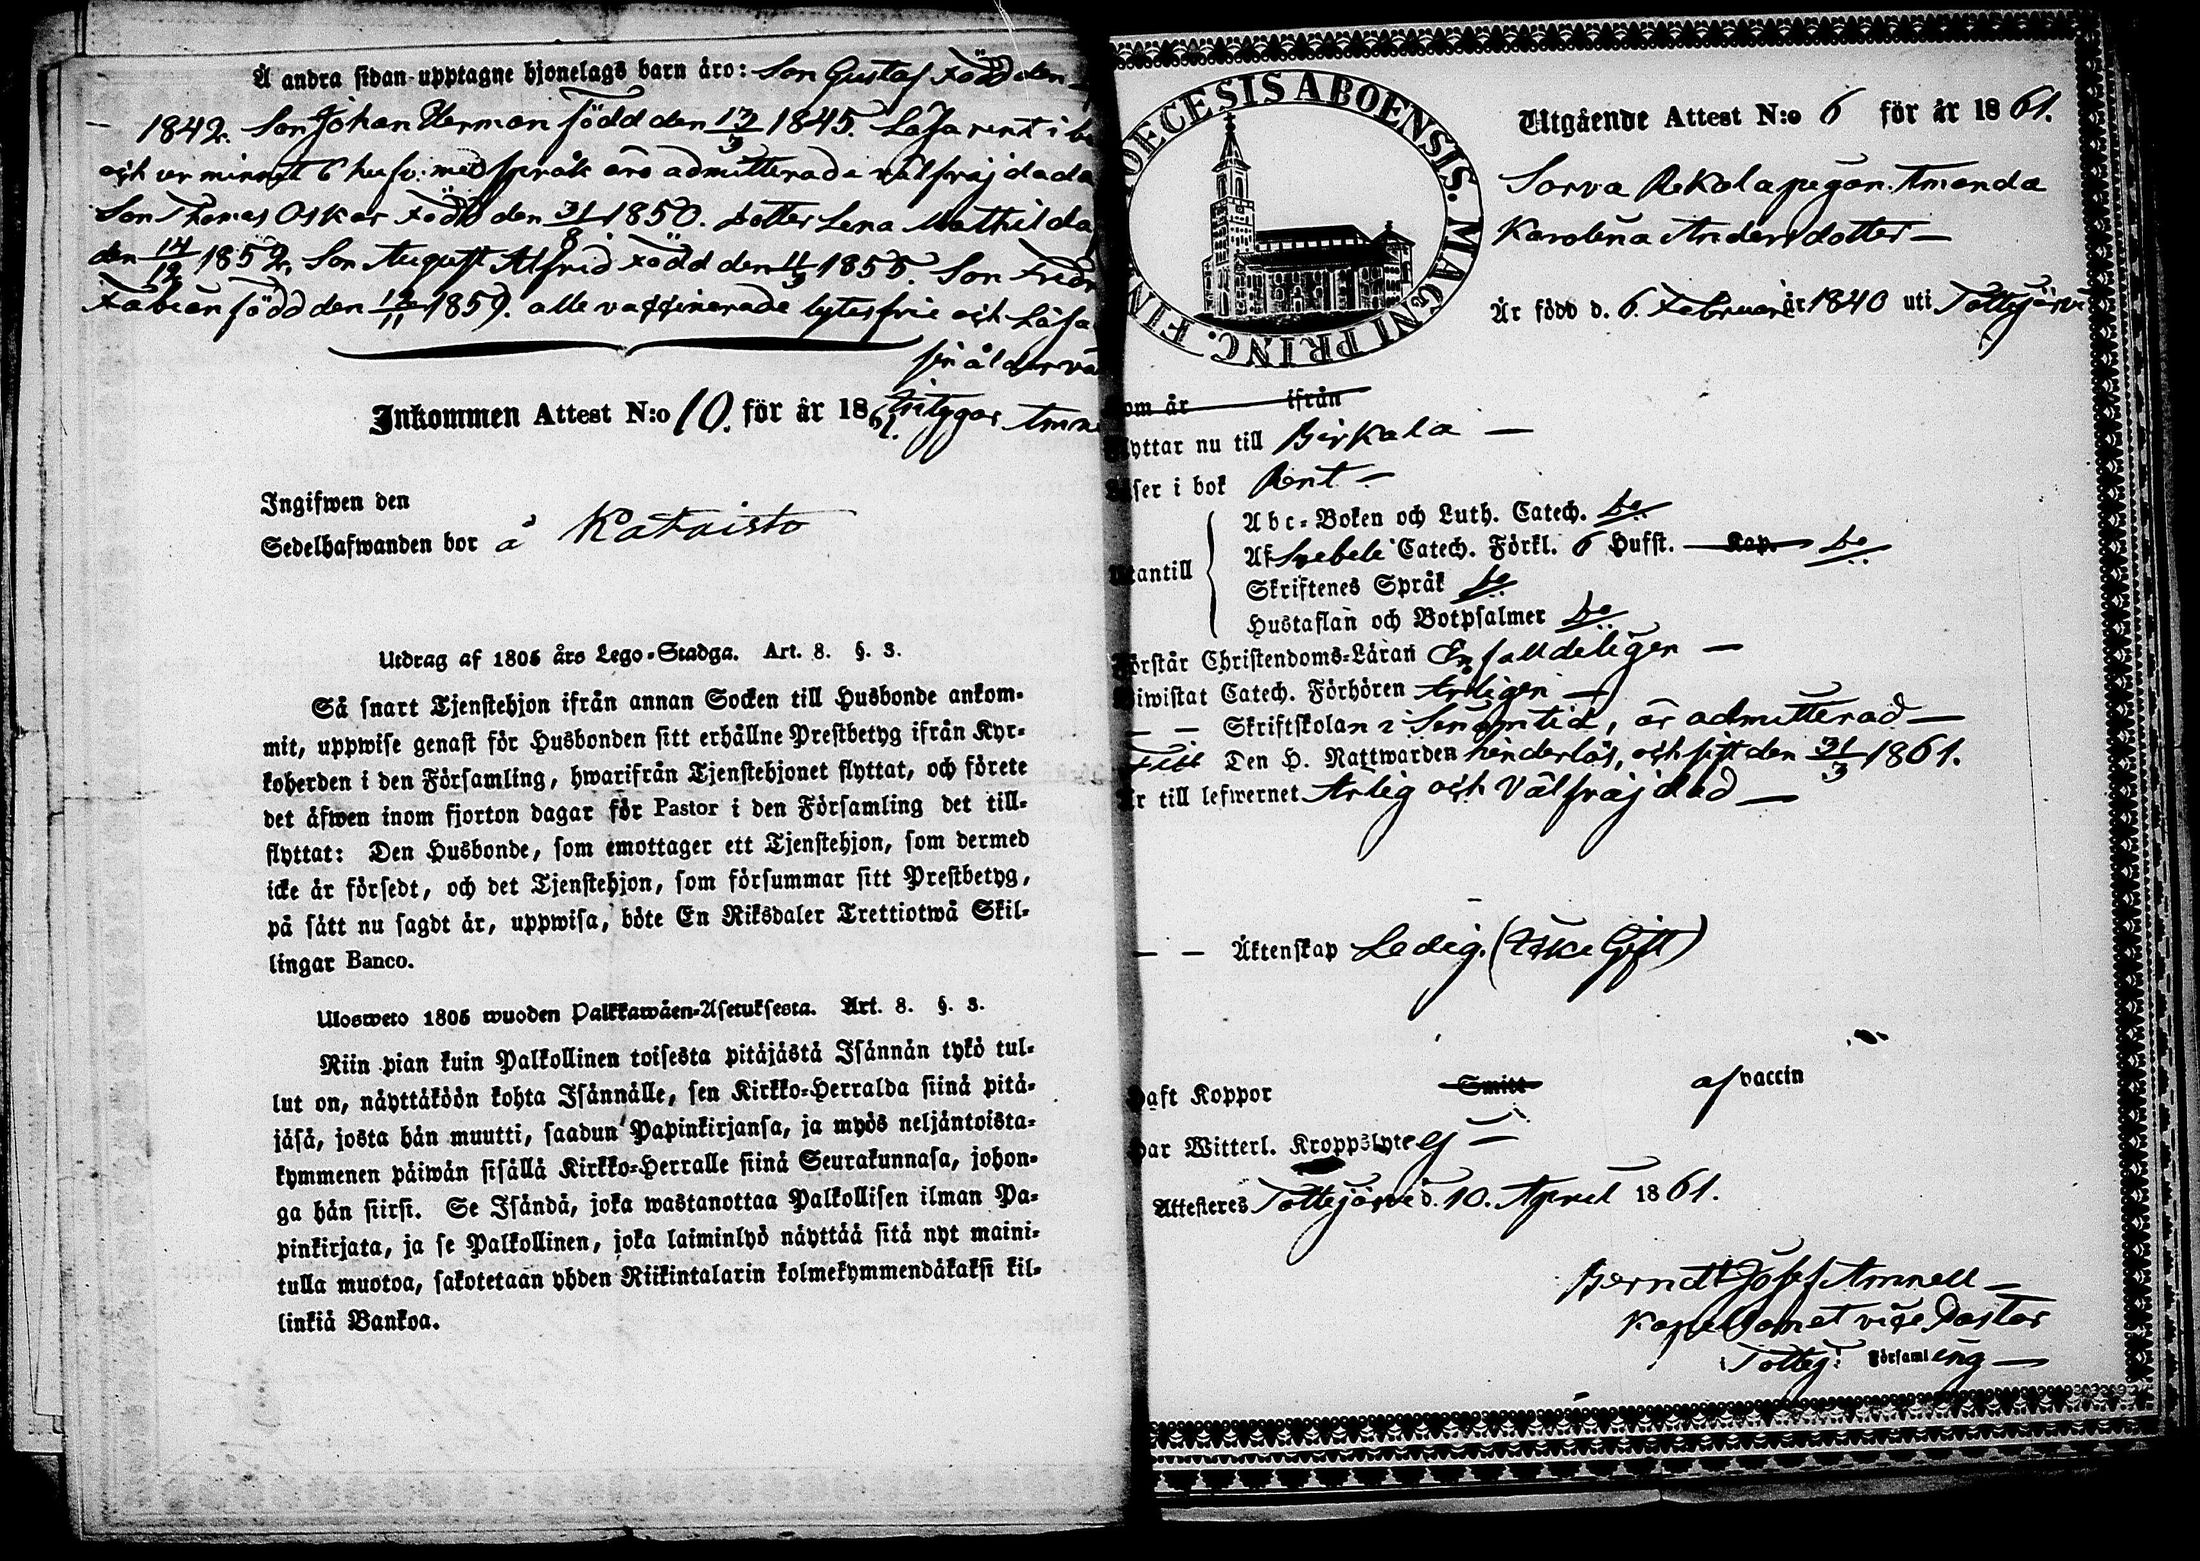 Å andra sidan upptagne hjonelags barn äro: Son Gustaf Född den
1842. Son Johan Herman född den 13/3 1845. Läsa rent i
och ur minnet 6 hufv: med språk äro admitterade välfräjdade
Son Thomas Oskar Född den 31/8 1850. Dotter Lena Mathilda
den 14/12 1852. Son August Alfrid Född den 11/3 1855. Son
Fabian född den 12/11 1859. alle vaccinerade lytesfrie och Läsa
Inkommen Attest N:o 10. för år 1861.
Ingifwen den
Sedelhafwanden bor å Kataisto
Utdrag af 1805 års Lego-Stadga. Art. 8. §. 3.
Så snart Tjenstehjon ifrån annan Socken till Husbonde ankom-
mit, uppwise genast för Husbonden sitt erhållne Prestbetyg ifrån Kyr-
koherden i den Församling, hwarifrån Tjenstehjonet flyttat, och förete
det äfwen inom fjorton dagar för Pastor i den Församling det till-
flyttat: Den Husbonde, som emottager ett Tjenstehjon, som dermed
icke är försedt, och det Tjenstehjon, som försummar sitt Prestbetyg,
på sätt nu sagdt är, uppwisa, böte En Riksdaler Trettiotwå Skil-
lingar Banco.
Ulosweto 1805 wuoden Palkkawäen-Asetuksesta. Art. 8. §. 3.
Niin pian kuin Palkollinen toisesta pitäjästä Isännän tykö tul-
lut on, näyttäköön kohta Isännälle, sen Kirkko-Herralda siinä pitä-
jäsä, josta hän muutti, saadun Papinkirjansa, ja myös neljäntoista-
kymmenen päiwän sisällä Kirkko-Herralle siinä Seurakunnasa, johon-
ga hän siirsi. Se Isändä, joka wastanottaa Palkollisen ilman Pa-
pinkirjata, ja se Palkollinen, joka laiminlyö näyttää sitä nyt maini-
tulla muotoa, sakotetaan yhden Riikintalarin kolmekymmendäkaksi kil-
linkiä Bankoa.
DIOECESIS ABOENSIS. MAGNI PRINC. FIN
Utgående Attest N:o 6 för år 1861.
Sorva Rekola pegan. Amanda
Karolina Andersdotter
Är född d. 6. Februari år 1840 uti Tottijärvi
om år ifrån
yttar nu till Birkala
ser i bok Rent
Abc-Boken och Luth. Catech. do
Af Svebeli Catech. Förkl. 6 Hufst. Kap. do
antill
Skriftenes Språk do
Hustaflan och Botpsalmer do
örstår Christendoms-Läran Enfalldeligen
iwistat Catech. Förhören Årligen
Skriftskolan i Sinom tid, är admitterad
Den H. Nattwarden hinderlös, och sist den 31/3 1861.
r till lefwernet Ärlig och Välfräjdad
Äktenskap Ledig. (Icke Gift)
aft Koppor Smitt af vaccin
ar Witterl. Kroppslyte ej
Attesteres Tottijärvi d. 10. April 1861.
Berndt Josef Amnell
Kapellanet vice Pastor
i Tottej: Församling